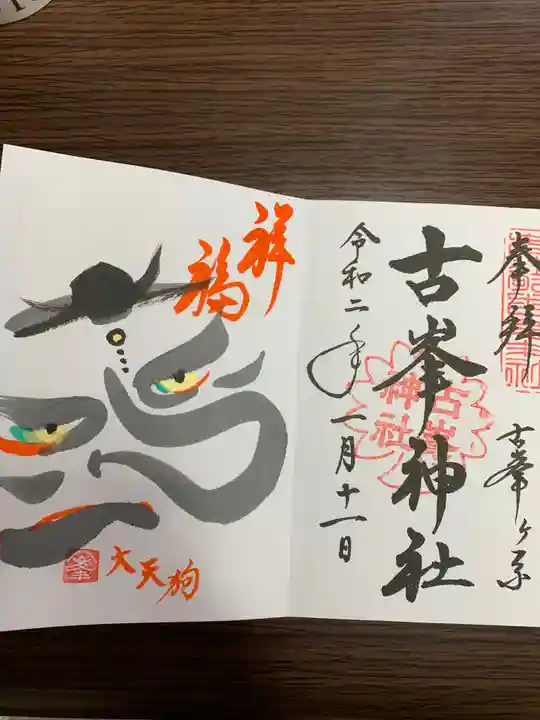 奉拝
古峯ヶ原
古峯神社
古峯
神社
令和二年一月十一日
祥福
大天狗
峯